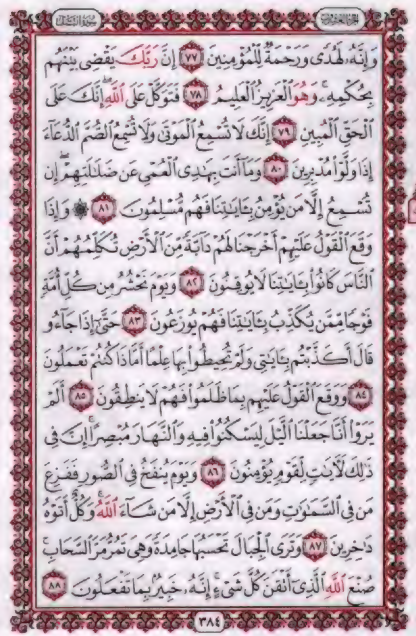 الجزء العشرون
سورة النمل
وَإِنَّهُۥ لَهُدًى وَرَحْمَةٌ لِّلْمُؤْمِنِينَ ٧٧ إِنَّ رَبَّكَ يَقْضِى بَيْنَهُم
بِحُكْمِهِۦ وَهُوَ ٱلْعَزِيزُ ٱلْعَلِيمُ ٧٨ فَتَوَكَّلْ عَلَى ٱللَّهِ ۖ إِنَّكَ عَلَى
ٱلْحَقِّ ٱلْمُبِينِ ٧٩ إِنَّكَ لَا تُسْمِعُ ٱلْمَوْتَىٰ وَلَا تُسْمِعُ ٱلصُّمَّ ٱلدُّعَآءَ
إِذَا وَلَّوْا۟ مُدْبِرِينَ ٨٠ وَمَآ أَنتَ بِهَٰدِى ٱلْعُمْىِ عَن ضَلَٰلَتِهِمْ ۖ إِن
تُسْمِعُ إِلَّا مَن يُؤْمِنُ بِـَٔايَٰتِنَا فَهُم مُّسْلِمُونَ ٨١ ۞ وَإِذَا
وَقَعَ ٱلْقَوْلُ عَلَيْهِمْ أَخْرَجْنَا لَهُمْ دَآبَّةً مِّنَ ٱلْأَرْضِ تُكَلِّمُهُمْ أَنَّ
ٱلنَّاسَ كَانُوا۟ بِـَٔايَٰتِنَا لَا يُوقِنُونَ ٨٢ وَيَوْمَ نَحْشُرُ مِن كُلِّ أُمَّةٍ
فَوْجًا مِّمَّن يُكَذِّبُ بِـَٔايَٰتِنَا فَهُمْ يُوزَعُونَ ٨٣ حَتَّىٰٓ إِذَا جَآءُو
قَالَ أَكَذَّبْتُم بِـَٔايَٰتِى وَلَمْ تُحِيطُوا۟ بِهَا عِلْمًا أَمَّاذَا كُنتُمْ تَعْمَلُونَ
٨٤ وَوَقَعَ ٱلْقَوْلُ عَلَيْهِم بِمَا ظَلَمُوا۟ فَهُمْ لَا يَنطِقُونَ ٨٥ أَلَمْ
يَرَوْا۟ أَنَّا جَعَلْنَا ٱلَّيْلَ لِيَسْكُنُوا۟ فِيهِ وَٱلنَّهَارَ مُبْصِرًا ۚ إِنَّ فِى
ذَٰلِكَ لَءَايَٰتٍ لِّقَوْمٍ يُؤْمِنُونَ ٨٦ وَيَوْمَ يُنفَخُ فِى ٱلصُّورِ فَفَزِعَ
مَن فِى ٱلسَّمَٰوَٰتِ وَمَن فِى ٱلْأَرْضِ إِلَّا مَن شَآءَ ٱللَّهُ ۚ وَكُلٌّ أَتَوْهُ
دَٰخِرِينَ ٨٧ وَتَرَى ٱلْجِبَالَ تَحْسَبُهَا جَامِدَةً وَهِىَ تَمُرُّ مَرَّ ٱلسَّحَابِ ۚ
صُنْعَ ٱللَّهِ ٱلَّذِىٓ أَتْقَنَ كُلَّ شَىْءٍ ۚ إِنَّهُۥ خَبِيرٌۢ بِمَا تَفْعَلُونَ ٨٨
٣٨٤